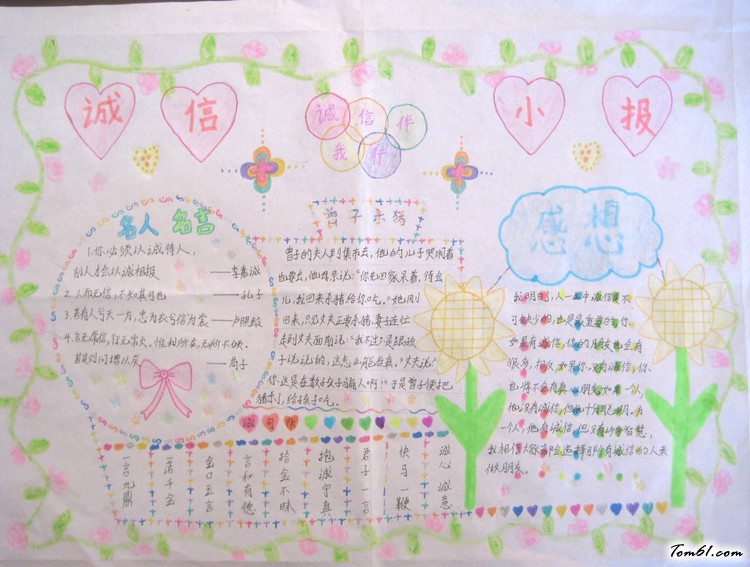 诚 信 小 报
诚 信 伴
我 行
名人 名言
1.你必须以诚待人,
别人才会以诚相报 ——李嘉诚
2.人而无信,不知其可也 ——孔子
3.若有人兮天一方,忠为衣兮信为裳 ——卢照龄
4.言无常信,行无常贞,惟利所在,无所不倾,
若是则可谓小人矣 ——荀子
曾子杀猪
曾子的夫人到集市去,他的儿子哭闹着
也要去,他母亲说:"你先回家呆着,待会
儿我回来杀猪给你吃。"她刚
回来,只见丈夫正要杀猪,妻子连忙
走到丈夫面前说:"我不过是跟孩
子说说的,这怎么能当真。"丈夫说:"
你这是在教孩子骗人啊!"于是曾子便把
猪杀了,给孩子吃。
感想
我明白,人一生中诚信是不
可缺少的,也是最重要的,你
如果有诚信,你的朋友也会有
很多,相反,如果你没有诚信,你
也将不会有真心朋友,如果一个人,
他没有诚信,但他十分聪明,另
一个人,他有诚信,但没有什么智慧,
我相信大家都会选择那个有诚信的人来
做朋友。
诚心诚意
快马一鞭
君子一言
抱诚守真
拾金不昧
言和有德
金口玉言
一诺千金
一言九鼎
Tom61.com